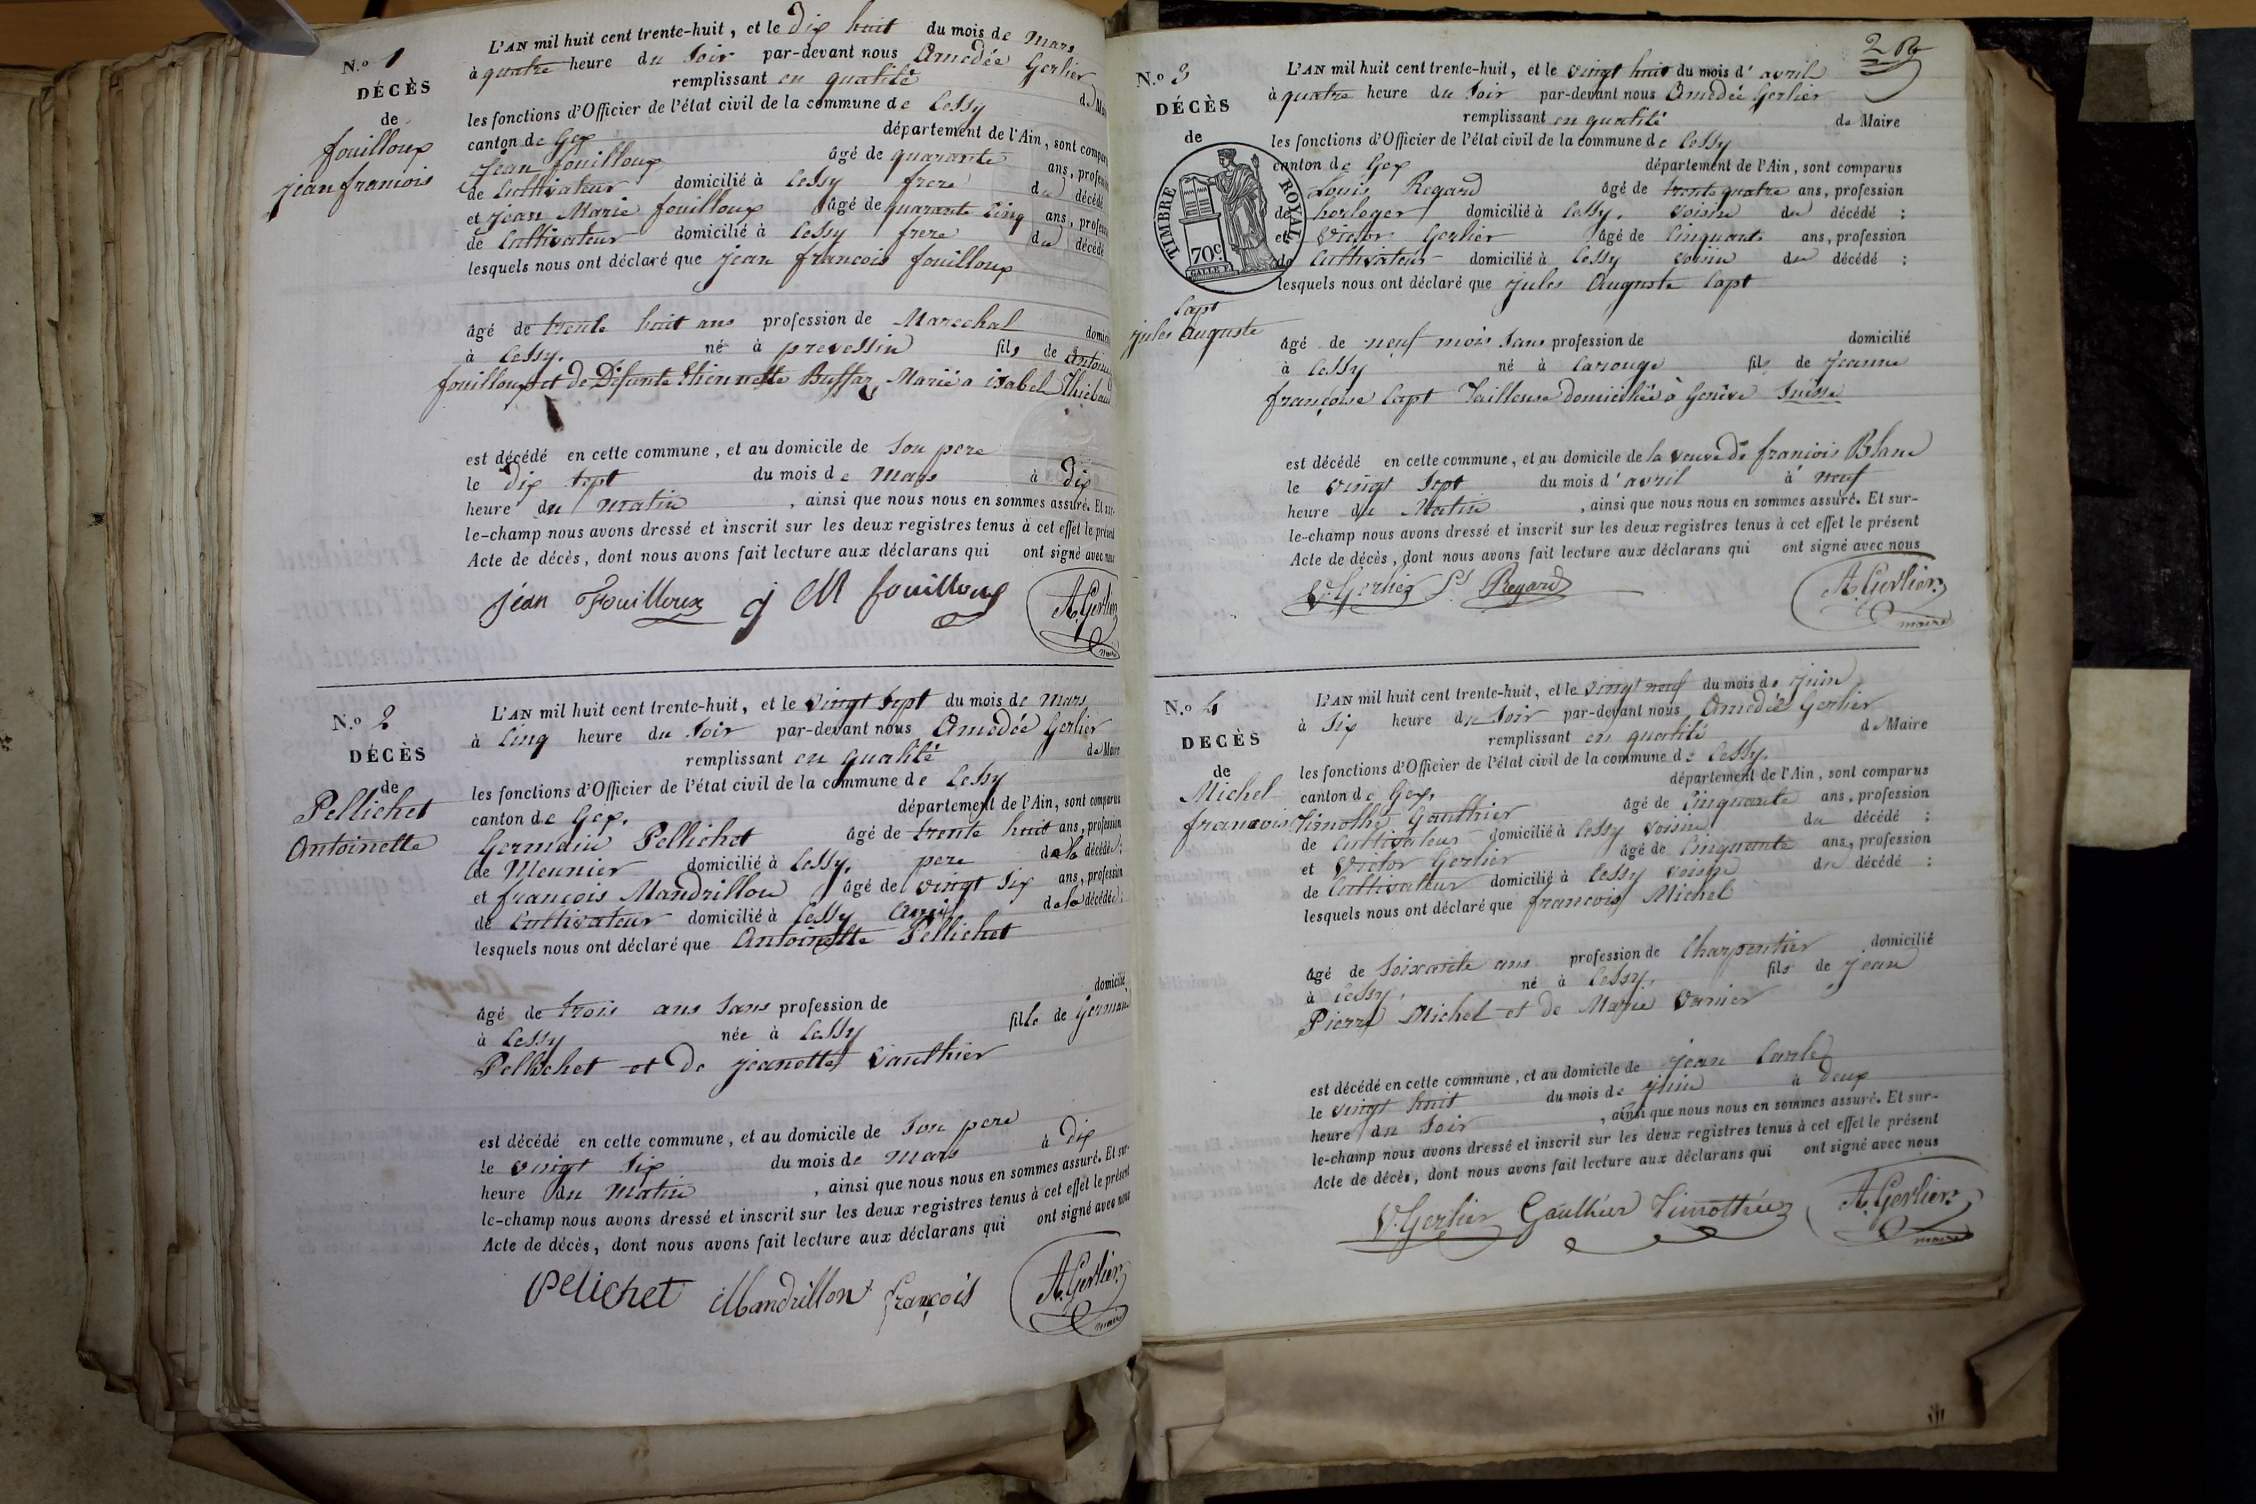 N.o 1
DÉCÈS
de
fouilloux
jean francois
L'AN mil huit cent trente-huit, et le dix huit du mois de Mars
à quatre heure du Soir par-devant nous Amédée Gerlier
remplissant en qualité de Maire
les fonctions d'Officier de l'état civil de la commune de Cessy
canton de Gex département de l'Ain, sont comparus
jean fouilloux âgé de quarante ans, profession
de Cultivateur domicilié à Cessy frere du décédé
et jean Marie fouilloux âgé de quarante Cinq ans, profession
de Cultivateur domicilié à Cessy frere du décédé
lesquels nous ont déclaré que jean francois fouilloux
âgé de trente huit ans profession de Marechal domicilié
à Cessy. né à prevessin fils de Antoine
fouilloux et de Défunte Etiennette Buffaz, Marié a isabel Thiebaud
est décédé en cette commune, et au domicile de Son pere
le dix sept du mois de Mars à dix
heure du matin, ainsi que nous nous en sommes assuré. Et sur-
le-champ nous avons dressé et inscrit sur les deux registres tenus à cet effet le présent
Acte de décès, dont nous avons fait lecture aux déclarans qui ont signé avec nous
jéan Fouilloux j M fouilloux A. Gerlier
maire
N.o 2
DÉCÈS
de
Pellichet
Antoinette
L'AN mil huit cent trente-huit, et le vingt Sept du mois de Mars
à Cinq heure du Soir par-devant nous Amédée Gerlier
remplissant en qualité de Maire
les fonctions d'Officier de l'état civil de la commune de Cessy
canton de Gex. département de l'Ain, sont comparus
Germain Pellichet âgé de trente huit ans, profession
de Meunier domicilié à Cessy. pere de la décédée;
et françois Mandrillon âgé de vingt Six ans, profession
de Cultivateur domicilié à Cessy Ami de la décédée;
lesquels nous ont déclaré que Antoinette Pellichet
âgé de trois ans Sans profession de domicilié
à Cessy née à Cessy fille de Germain
Pellichet et de jeanette Vauthier
est décédé en cette commune, et au domicile de Son pere
le vingt Six du mois de Mars à dix
heure du Matin, ainsi que nous nous en sommes assuré. Et sur-
le-champ nous avons dressé et inscrit sur les deux registres tenus à cet effet le présent
Acte de décès, dont nous avons fait lecture aux déclarans qui ont signé avec nous
Pelichet Mandrillon françois A. Gerlier
maire
2
N.o 3
DÉCÈS
de
TIMBRE ROYAL
70c.
Capt
jules Auguste
L'AN mil huit cent trente-huit, et le vingt huit du mois d' avril
à quatre heure du Soir par-devant nous Amédée Gerlier
remplissant en qualité de Maire
les fonctions d'Officier de l'état civil de la commune de Cessy
canton de Gex département de l'Ain, sont comparus
Louis Regard âgé de trente quatre ans, profession
de horloger domicilié à Cessy. voisin du décédé;
et Victor Gerlier âgé de Cinquante ans, profession
de Cultivateur domicilié à Cessy voisin du décédé;
lesquels nous ont déclaré que jules Auguste Capt
âgé de neuf mois Sans profession de domicilié
à Cessy né à Carouge fils de jeanne
françoise Capt Tailleuse domiciliée à Genève Suisse
est décédé en cette commune, et au domicile de la veuve de francois Blanc
le vingt Sept du mois d' avril à neuf
heure du Matin, ainsi que nous nous en sommes assuré. Et sur-
le-champ nous avons dressé et inscrit sur les deux registres tenus à cet effet le présent
Acte de décès, dont nous avons fait lecture aux déclarans qui ont signé avec nous
V. Gerlier Ls Regard A. Gerlier
maire
N.o 4
DECÈS
de
Michel
francois
L'AN mil huit cent trente-huit, et le vingt neuf du mois de juin
à Six heure du Soir par-devant nous Amédée Gerlier
remplissant en qualité de Maire
les fonctions d'Officier de l'état civil de la commune de Cessy.
canton de Gex. département de l'Ain, sont comparus
Timothé Gauthier âgé de Cinquante ans, profession
de Cultivateur domicilié à Cessy voisin du décédé;
et Victor Gerlier âgé de Cinquante ans, profession
de Cultivateur domicilié à Cessy voisin du décédé;
lesquels nous ont déclaré que francois Michel
âgé de Soixante ans profession de Charpentier domicilié
à Cessy. né à Cessy. fils de jean
Pierre Michel et de Marie Vanier
est décédé en cette commune, et au domicile de jean Carle
le vingt huit du mois de juin à deux
heure du Soir, ainsi que nous nous en sommes assuré. Et sur-
le-champ nous avons dressé et inscrit sur les deux registres tenus à cet effet le présent
Acte de décès, dont nous avons fait lecture aux déclarans qui ont signé avec nous
V. Gerlier Gaulthier Timothée A. Gerlier
maire